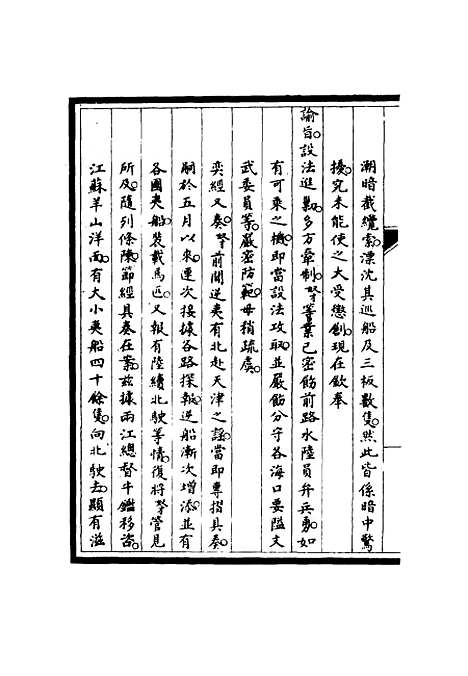 潮暗截纜索漂沈其巡船及三板數隻然此皆係暗中驚
擾究未能使之大受懲創現在欽奉
諭旨設法進勦多方牽制等業已密飭前路水陸員弁兵勇如
有可乘之機即當設法攻取並嚴飭分守各海口要隘文
武委員等嚴密防範毋稍疏虞
奕經又奏前聞逆夷有北赴天津之謠當即專摺具奏
嗣於五月以來疊次接據各路探報逆船漸次增添並有
各國夷船裝載馬匹又報有陸續北駛等情復將管見
所及隨列條陳節經具奏在案茲據兩江總督牛鑑移咨
江蘇羊山洋面有大小夷船四十餘隻向北駛去顯有滋